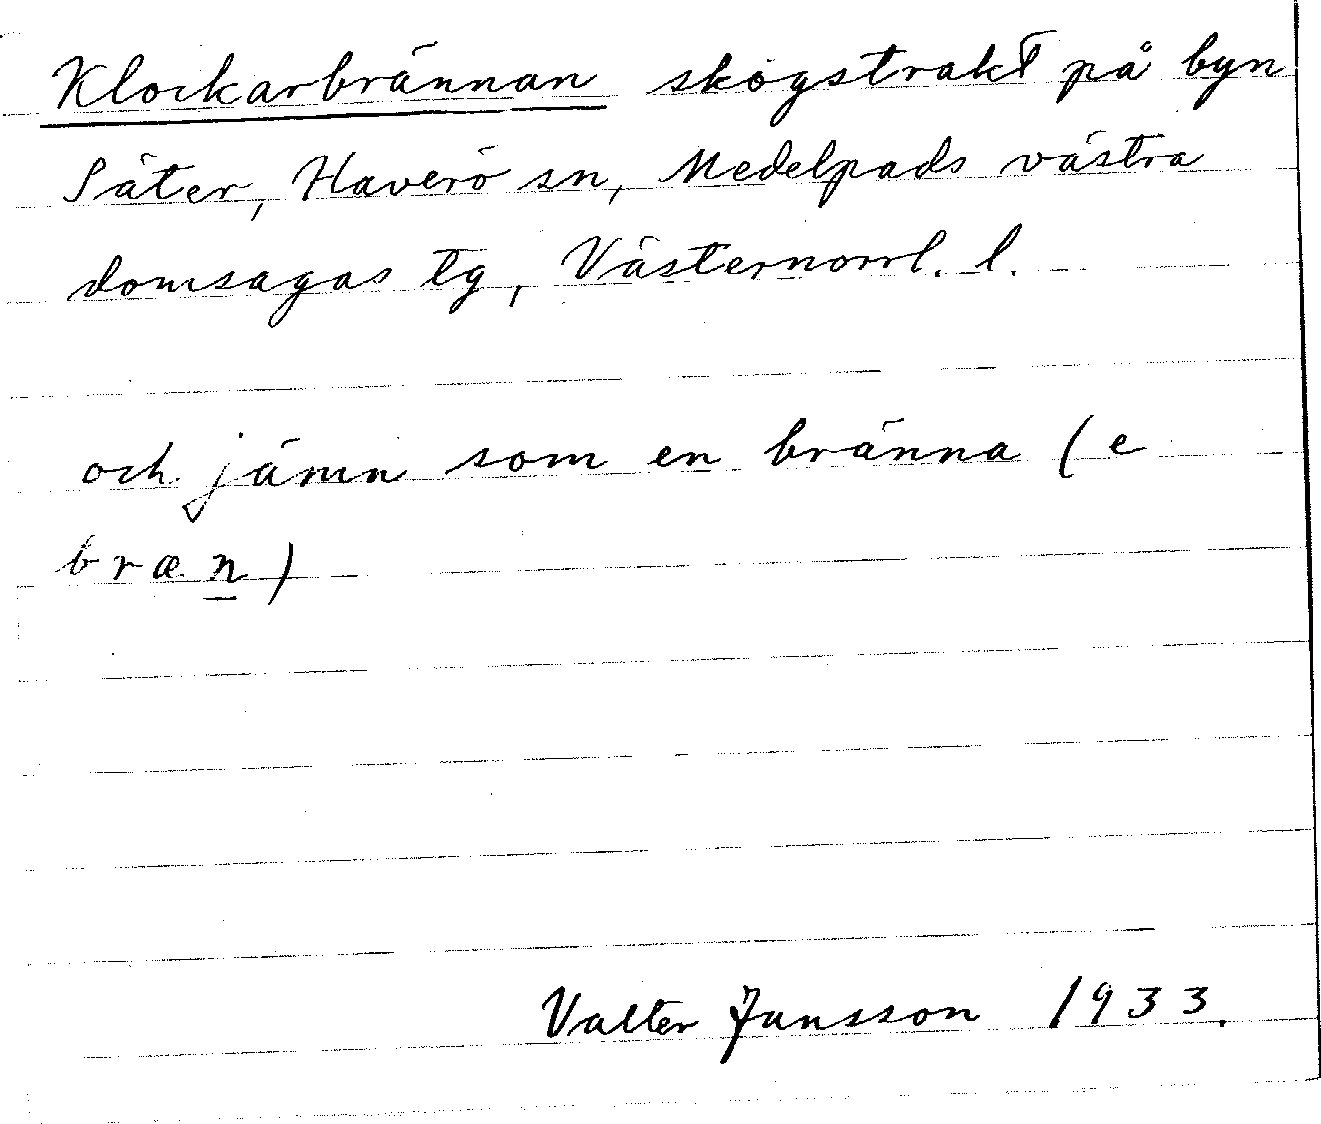 Klockarbrännan skogstrakt på byn
Säter, Haverö sn, Medelpads västra
domsagas tg, Västernorrl. l.
och jämn som en bränna (e
bræn)
Valter Jansson 1933.